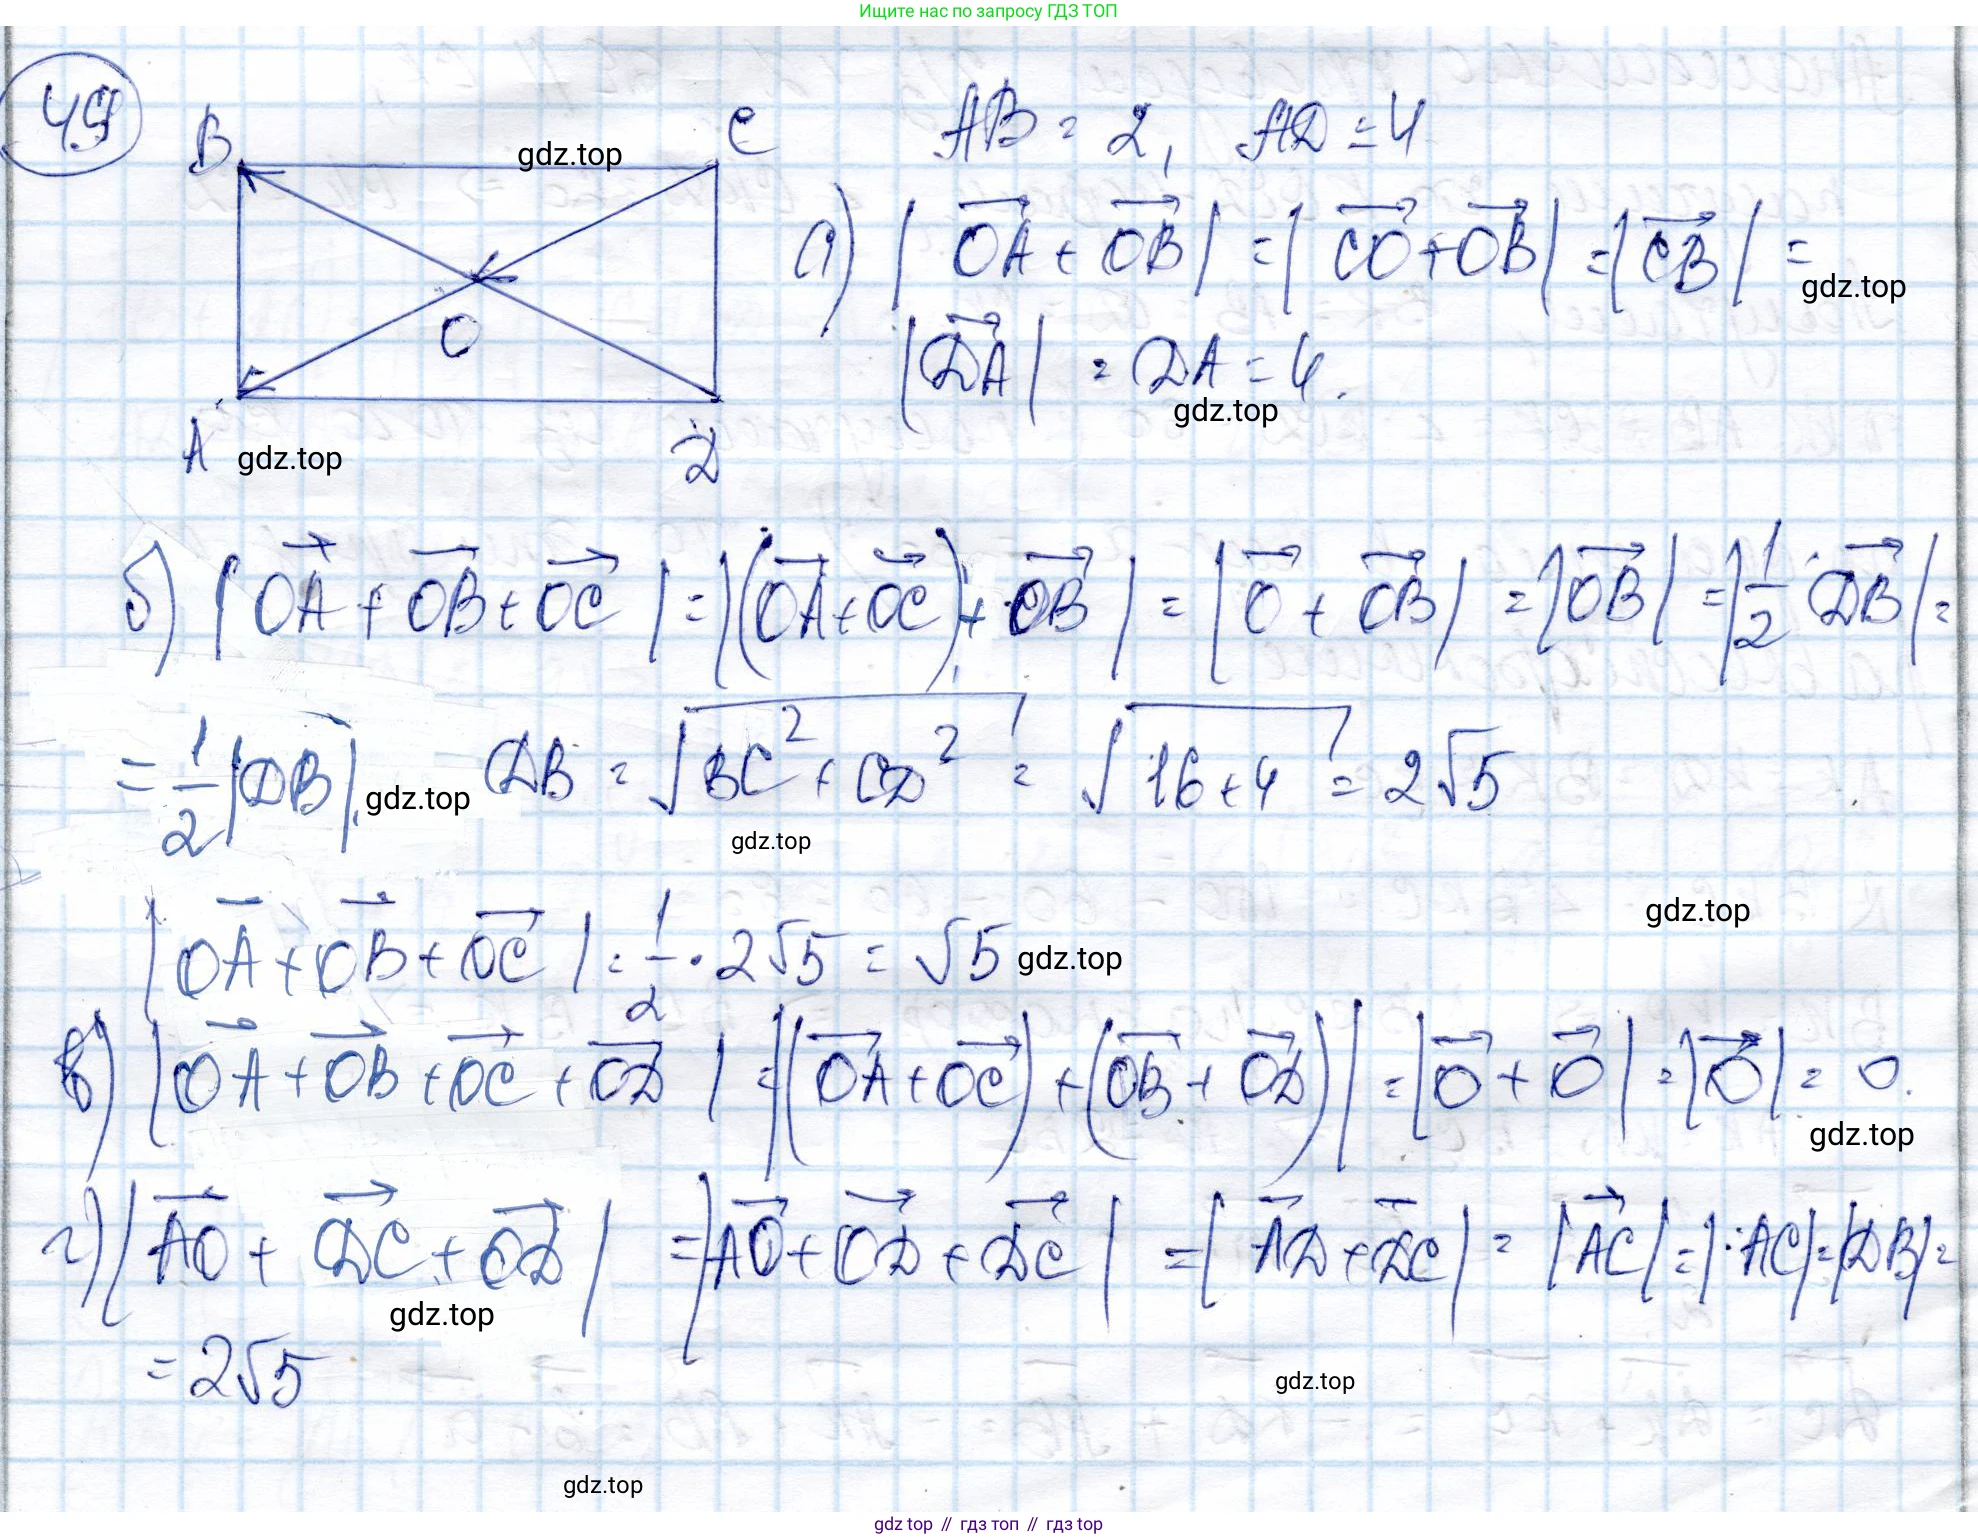 Ищите нас по запросу ГДЗ ТОП
49
B C gdz.top
AB = 2, AD = 4
а) |OA + OB| = |CO + OB| = |CB| =
gdz.top
|DA| = DA = 4.
gdz.top
O
A D
gdz.top
б) |OA + OB + OC| = |(OA + OC) + OB| = |O + OB| = |OB| = |1/2 DB| =
= 1/2 |DB|. gdz.top DB = √(BC² + CD²) = √(16 + 4) = 2√5
gdz.top
gdz.top
|OA + OB + OC| = 1/2 · 2√5 = √5 gdz.top
в) |OA + OB + OC + OD| = |(OA + OC) + (OB + OD)| = |O + O| = |O| = 0.
gdz.top
г) |AO + DC + OD| = |AO + OD + DC| = |AD + DC| = |AC| = |AC| = |DB| =
gdz.top
= 2√5
gdz.top
gdz.top
gdz top // гдз топ // гдз top